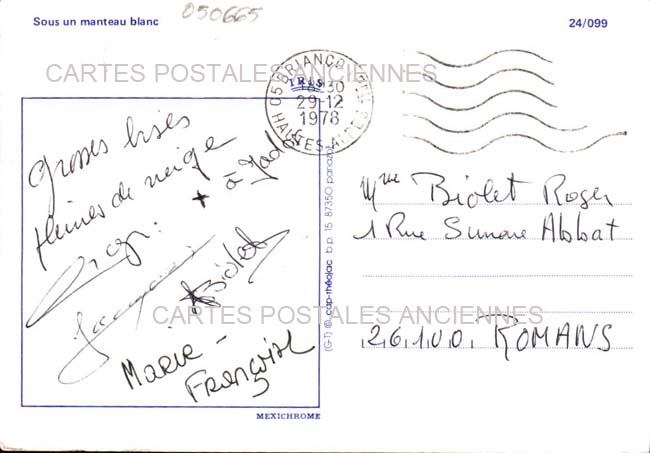 Sous un manteau blanc
050665
24/099
CARTES POSTALES ANCIENNES
05 BRIANCON
IRIS
16-30
29-12
1978
HAUTES-ALPES
Grosses bises
pleines de neige
+ à Jado
Biolet
Marie-
Françoise
MEXICHROME
(G-1) © cap-théojac b.p. 15 87350 panazol
Mme Biolet Roger
1 Rue Simone Abbat
CARTES POSTALES ANCIENNES
26100 ROMANS